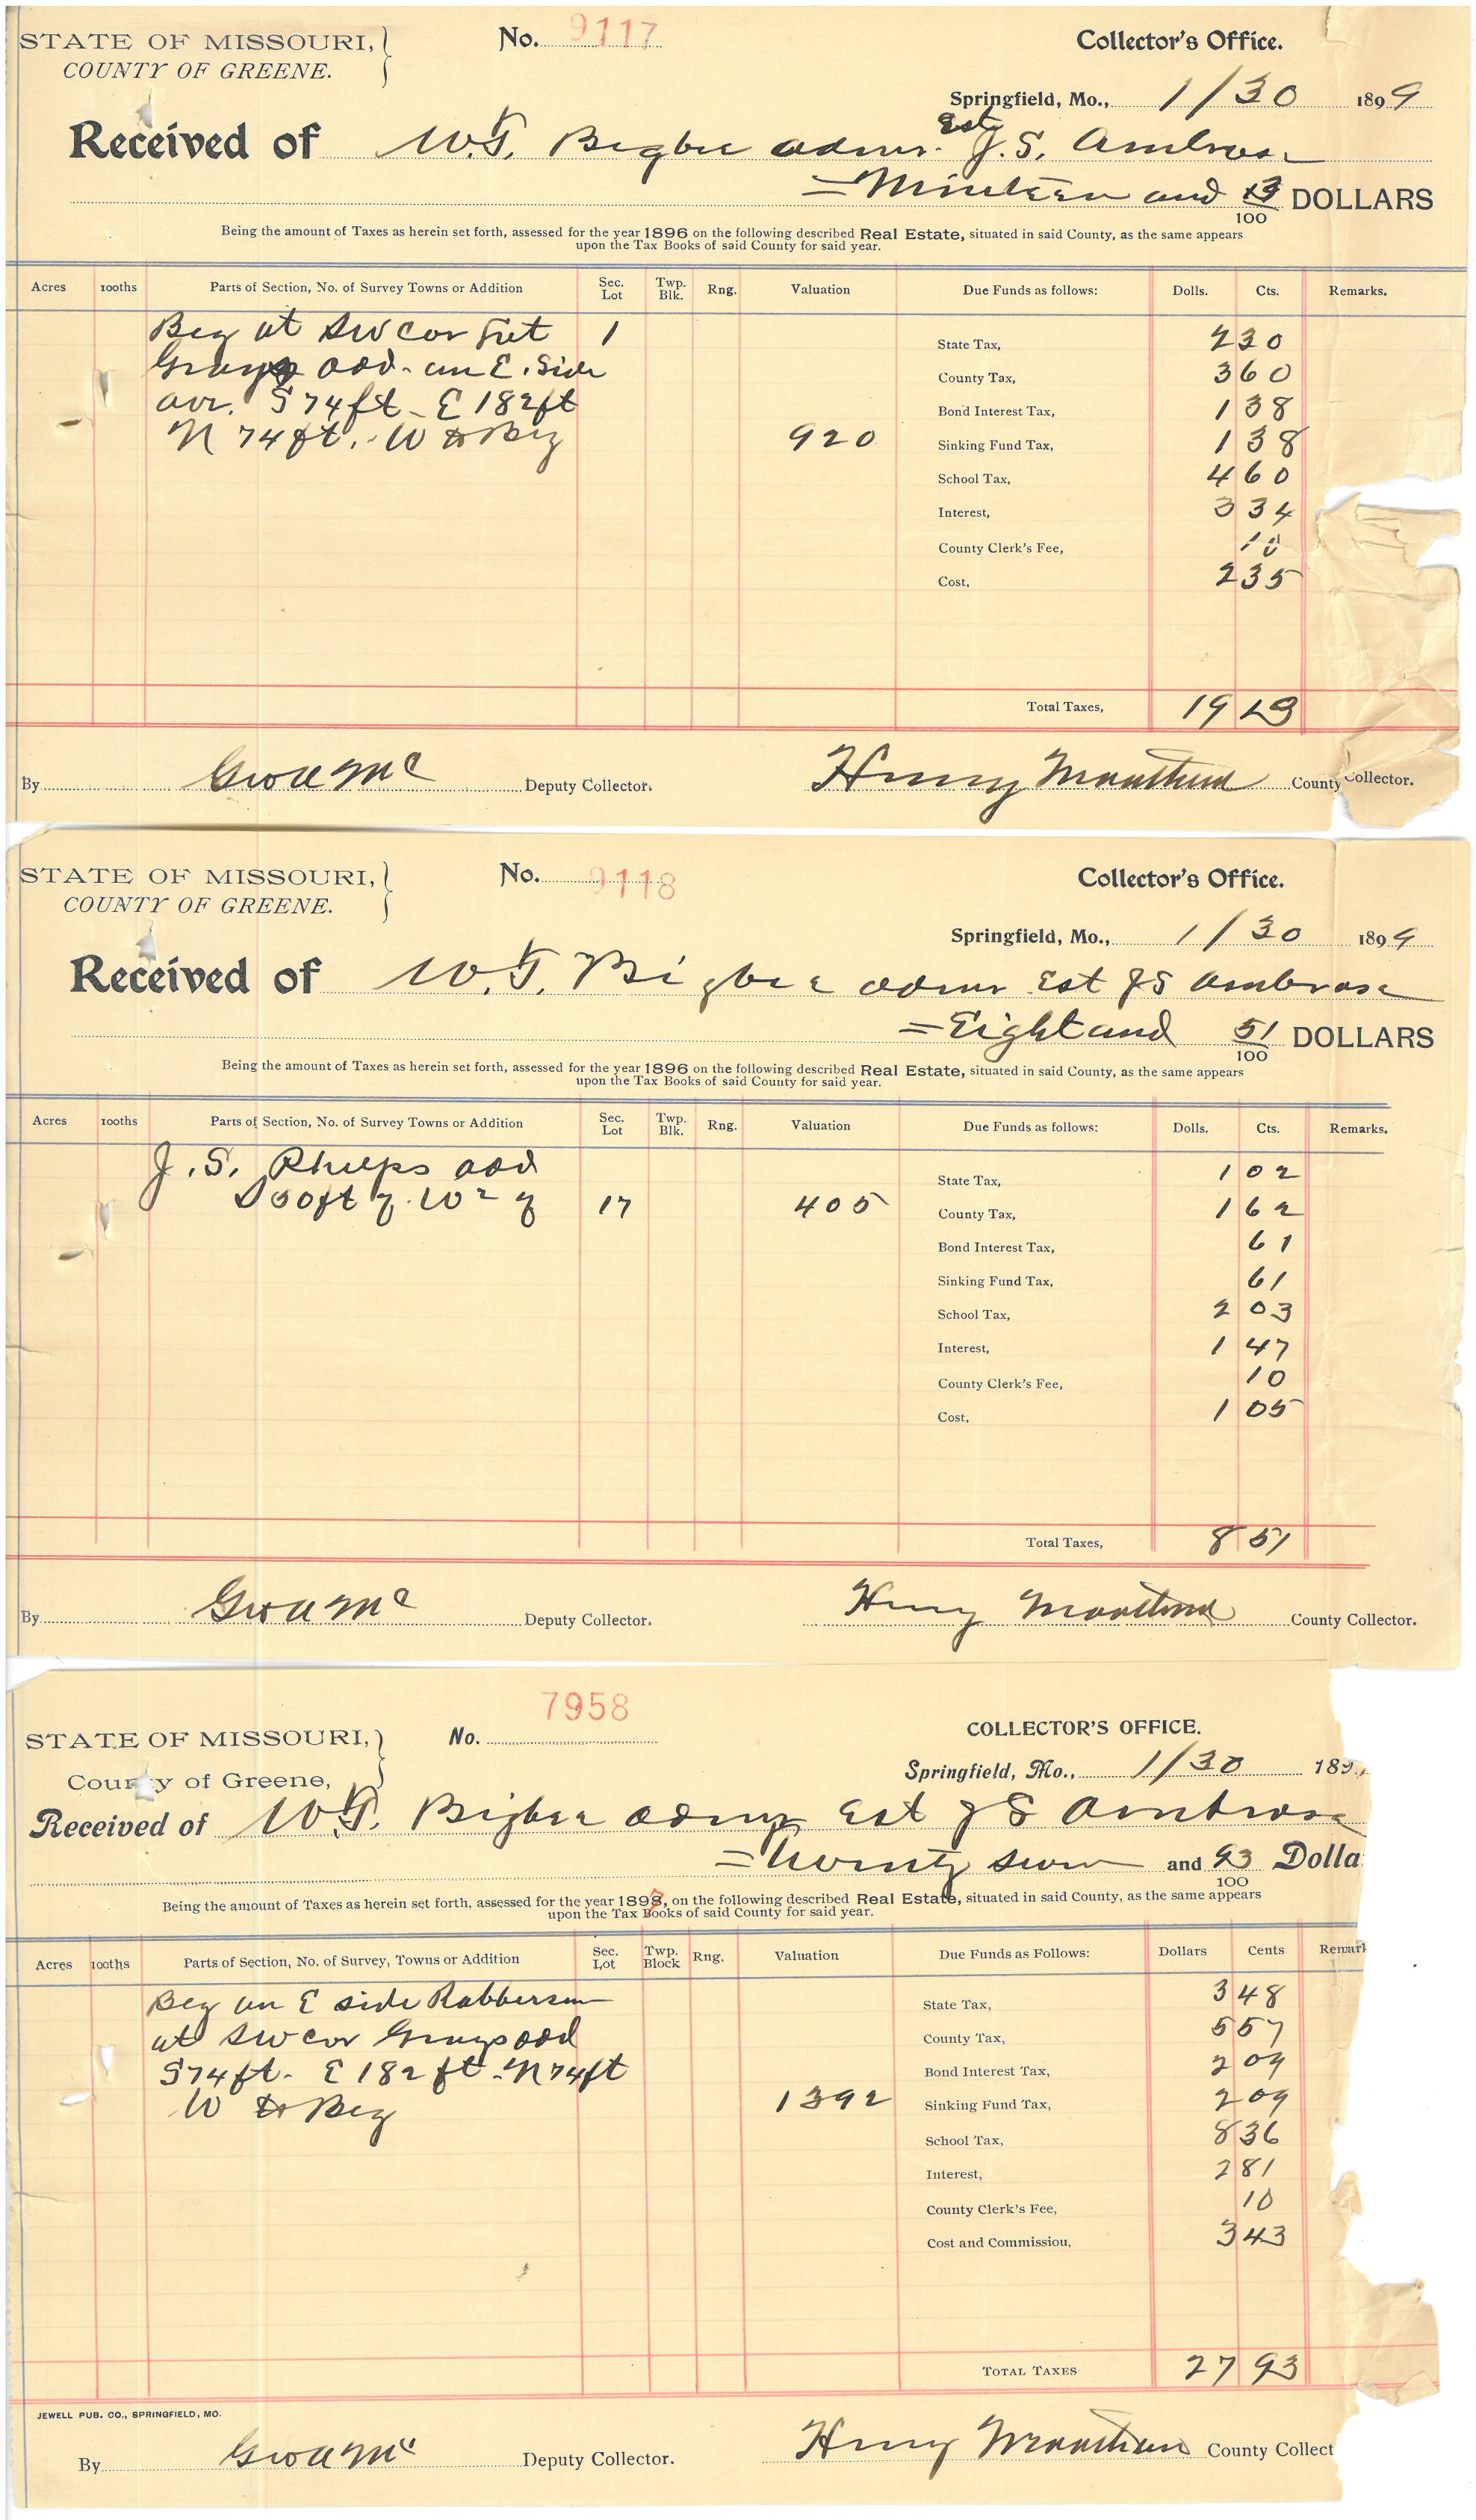 STATE OF MISSOURI, } No. 9117 Collector's Office.
COUNTY OF GREENE.
Springfield, Mo., 1/30 1899
Received of W.T. Bigbee admr. Est J.S. Ambrose
= Nineteen and 13/100 DOLLARS
Being the amount of Taxes as herein set forth, assessed for the year 1896 on the following described Real Estate, situated in said County, as the same appears
upon the Tax Books of said County for said year.
Acres 100ths Parts of Section, No. of Survey Towns or Addition Sec. Lot Twp. Blk. Rng. Valuation Due Funds as follows: Dolls. Cts. Remarks.
Beg at SW cor 1 State Tax, 2 30
Grays add - on E. Side County Tax, 3 60
S 74 ft - E 182 ft Bond Interest Tax, 1 38
N 74 ft. - W to Beg 920 Sinking Fund Tax, 1 38
School Tax, 4 60
Interest, 3 34
County Clerk's Fee, 10
Cost, 2 35
Total Taxes, 19 13
By Deputy Collector. Henry County Collector.
STATE OF MISSOURI, } No. 9118 Collector's Office.
COUNTY OF GREENE.
Springfield, Mo., 1/30 1899
Received of W.T. Bigbee admr Est JS Ambrose
= Eight and 51/100 DOLLARS
Being the amount of Taxes as herein set forth, assessed for the year 1896 on the following described Real Estate, situated in said County, as the same appears
upon the Tax Books of said County for said year.
Acres 100ths Parts of Section, No. of Survey Towns or Addition Sec. Lot Twp. Blk. Rng. Valuation Due Funds as follows: Dolls. Cts. Remarks.
J.S. Phelps add State Tax, 1 02
S 50 ft of W 2 of 17 405 County Tax, 1 62
Bond Interest Tax, 61
Sinking Fund Tax, 61
School Tax, 2 03
Interest, 1 47
County Clerk's Fee, 10
Cost, 1 05
Total Taxes, 8 51
By Deputy Collector. Henry County Collector.
7958
STATE OF MISSOURI, } No. COLLECTOR'S OFFICE.
County of Greene,
Springfield, Mo., 1/30 189
Received of W.T. Bigbee admr Est J S Ambrose
= Twenty seven and 93/100 Dolla
Being the amount of Taxes as herein set forth, assessed for the year 1897, on the following described Real Estate, situated in said County, as the same appears
upon the Tax Books of said County for said year.
Acres 100ths Parts of Section, No. of Survey, Towns or Addition Sec. Lot Twp. Block Rng. Valuation Due Funds as Follows: Dollars Cents Remark
Beg on E side Robberson State Tax, 3 48
at SW cor Grays add County Tax, 5 57
S 74 ft. E 182 ft - N 74 ft Bond Interest Tax, 2 09
W to Beg 1392 Sinking Fund Tax, 2 09
School Tax, 8 36
Interest, 2 81
County Clerk's Fee, 10
Cost and Commission, 3 43
TOTAL TAXES 27 93
JEWELL PUB. CO., SPRINGFIELD, MO.
By Deputy Collector. Henry County Collect